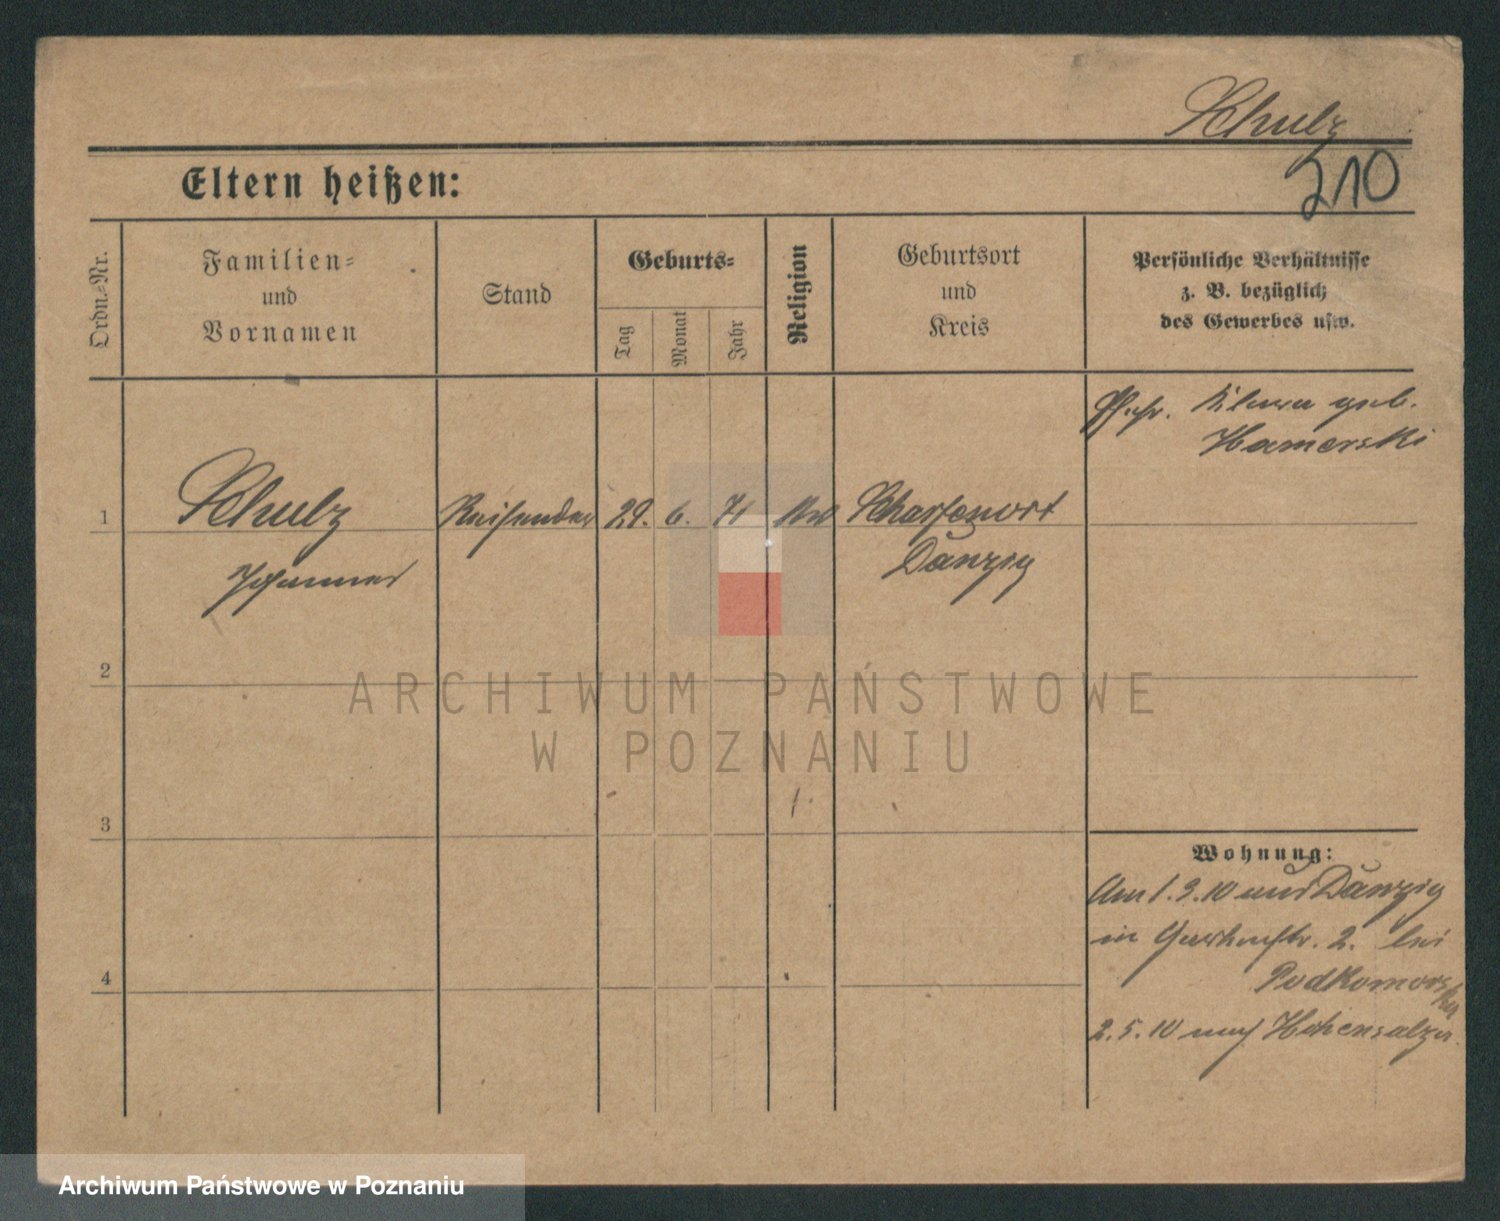 Schulz
210
Eltern heißen:
Ordn.-Nr.
Familien-
und
Vornamen
Stand
Geburts-
Tag
Monat
Jahr
Religion
Geburtsort
und
Kreis
Persönliche Verhältnisse
z. B. bezüglich
des Gewerbes usw.
geb.
Hamerski
1
Schulz
Reisender
29. 6. 71
Scharfenort
Johannes
Danzig
2
ARCHIWUM PAŃSTWOWE
W POZNANIU
3
Wohnung:
Am 1.3.10 aus Danzig
in Gartenstr. 2. bei
Podkomorski
4
2.5.10 nach Hohensalza
Archiwum Państwowe w Poznaniu